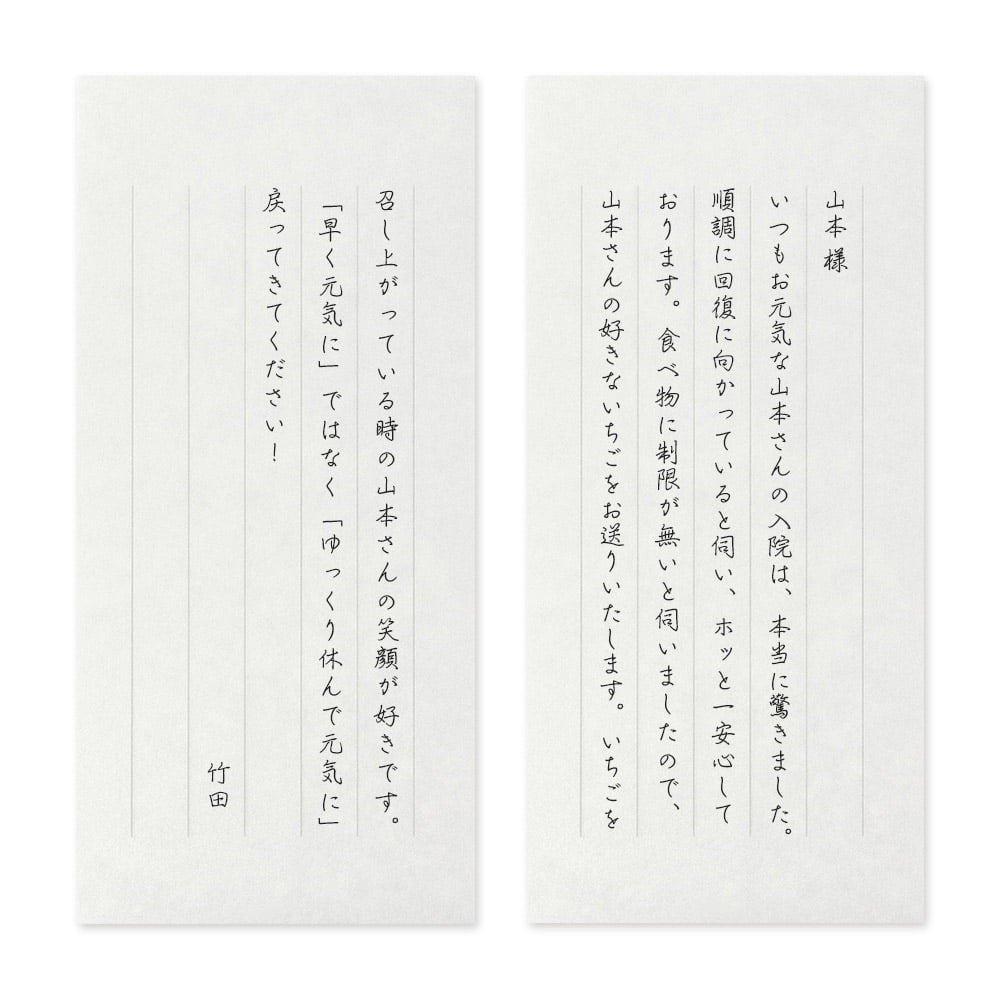 山本様
いつもお元気な山本さんの入院は、本当に驚きました。
順調に回復に向かっていると伺い、ホッと一安心して
おります。食べ物に制限が無いと伺いましたので、
山本さんの好きないちごをお送りいたします。いちごを
召し上がっている時の山本さんの笑顔が好きです。
「早く元気に」ではなく「ゆっくり休んで元気に」
戻ってきてください！
竹田